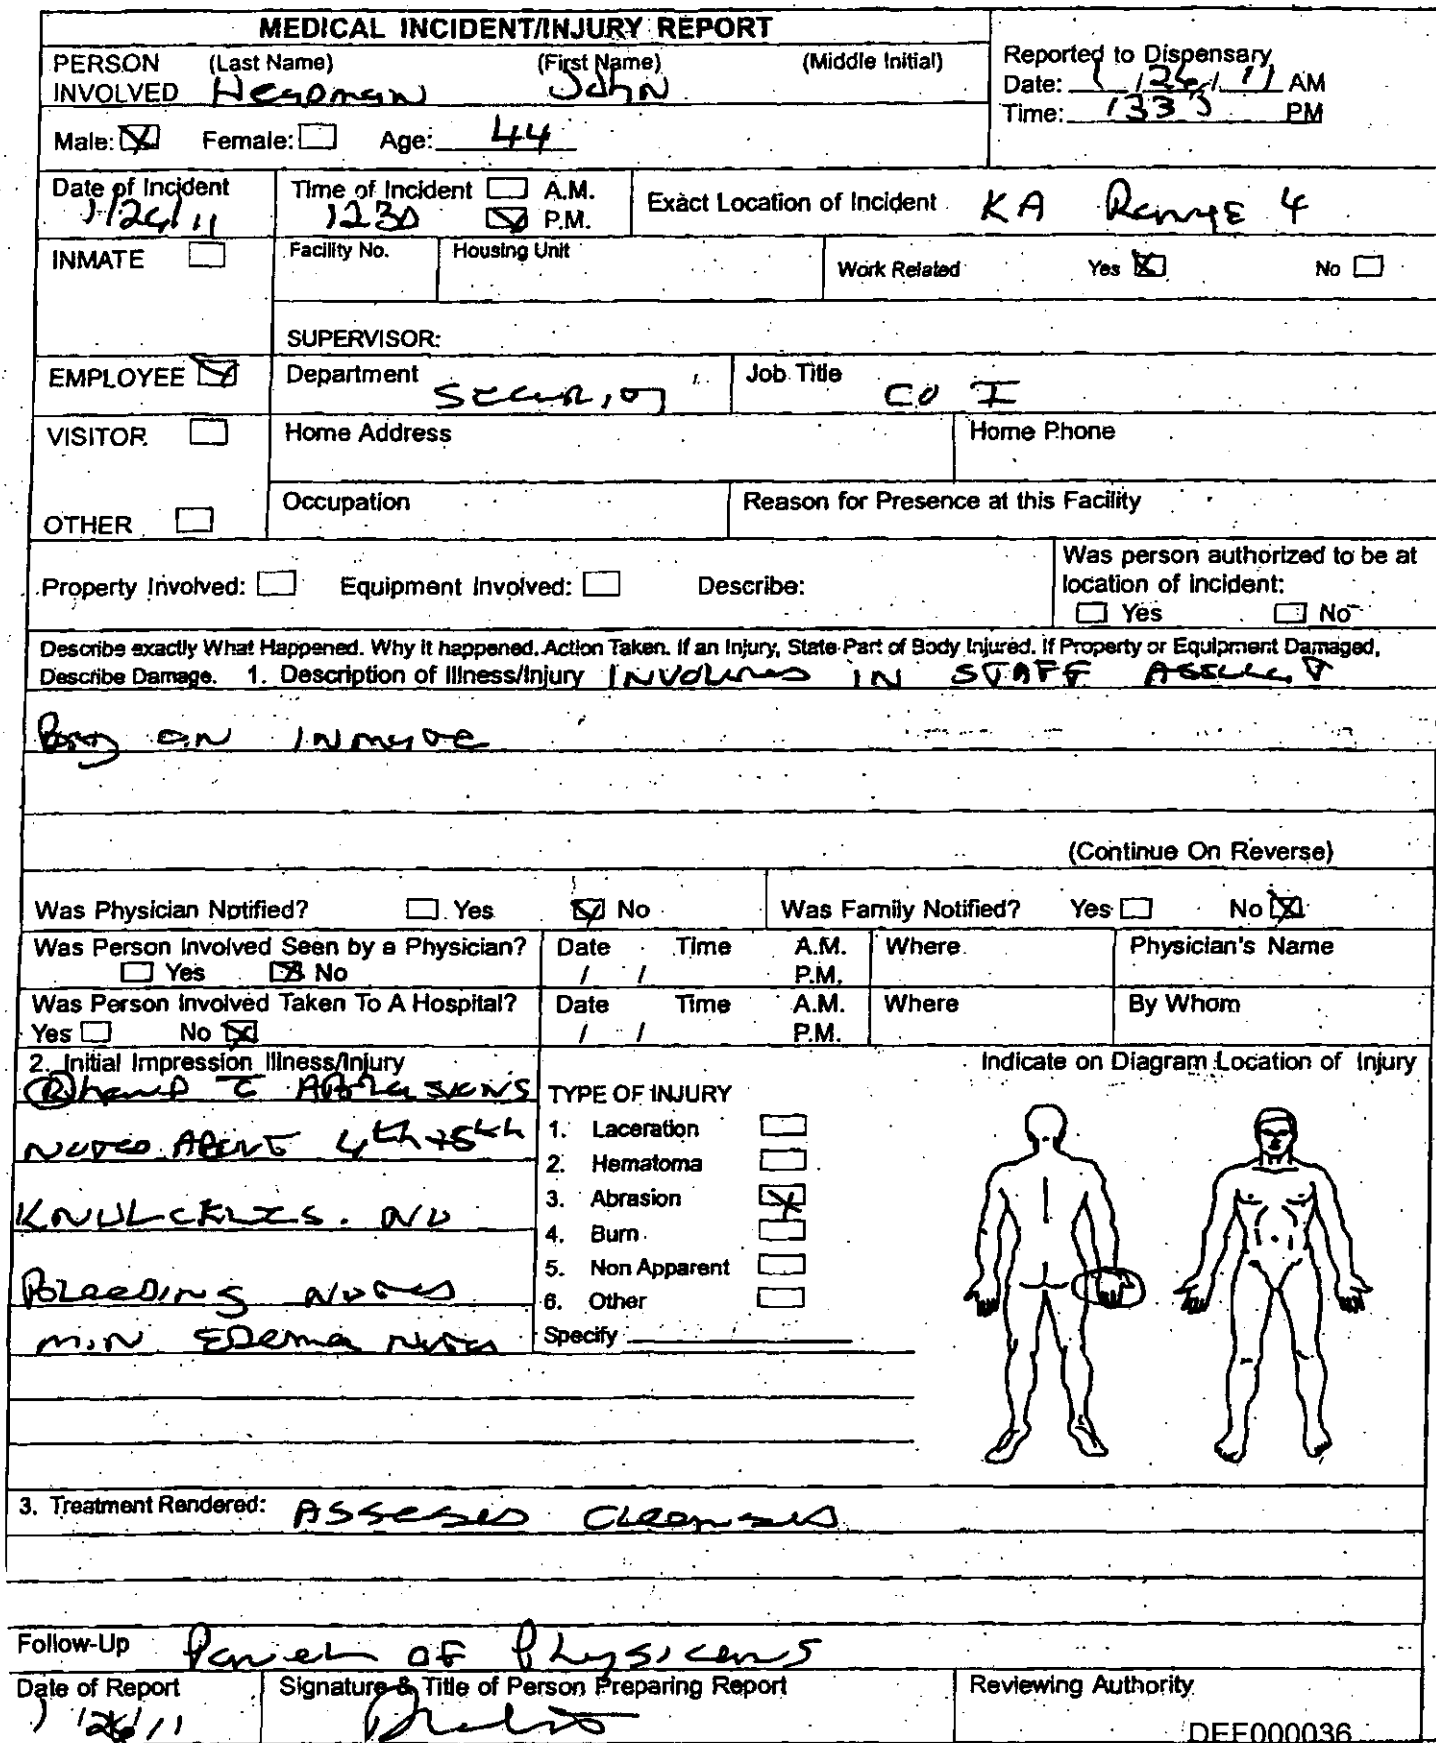 MEDICAL INCIDENT/INJURY REPORT
PERSON INVOLVED (Last Name) (First Name) (Middle Initial)
John
Reported to Dispensary
Date: 1/26/11 AM
Time: 1335 PM
Male: ☒ Female: ☐ Age: 44
Date of Incident 1/26/11
Time of Incident ☐ A.M. 1230 ☒ P.M.
Exact Location of Incident KA Range 4
INMATE ☐ Facility No. Housing Unit
Work Related Yes ☒ No ☐
SUPERVISOR:
EMPLOYEE ☒ Department Security Job Title CO I
VISITOR ☐ Home Address Home Phone
OTHER ☐ Occupation Reason for Presence at this Facility
Property Involved: ☐ Equipment Involved: ☐ Describe:
Was person authorized to be at location of incident:
☐ Yes ☐ No
Describe exactly What Happened. Why it happened. Action Taken. If an Injury, State Part of Body Injured. If Property or Equipment Damaged,
Describe Damage. 1. Description of Illness/Injury Involved in Staff Assault
By an Inmate
(Continue On Reverse)
Was Physician Notified? ☐ Yes ☒ No Was Family Notified? Yes ☐ No ☒
Was Person Involved Seen by a Physician? ☐ Yes ☒ No Date / / Time A.M. P.M. Where Physician's Name
Was Person Involved Taken To A Hospital? Yes ☐ No ☒ Date / / Time A.M. P.M. Where By Whom
2. Initial Impression Illness/Injury
Ⓡ hand c̄ Abrasions
Noted Above 4th + 5th
Knuckles. No
Bleeding Noted
min Edema Noted
TYPE OF INJURY
1. Laceration ☐
2. Hematoma ☐
3. Abrasion ☒
4. Burn ☐
5. Non Apparent ☐
6. Other ☐
Specify
Indicate on Diagram Location of Injury
3. Treatment Rendered: Assessed Cleansed
Follow-Up Panel of Physicians
Date of Report 1/26/11
Signature & Title of Person Preparing Report
Reviewing Authority
DEF000036